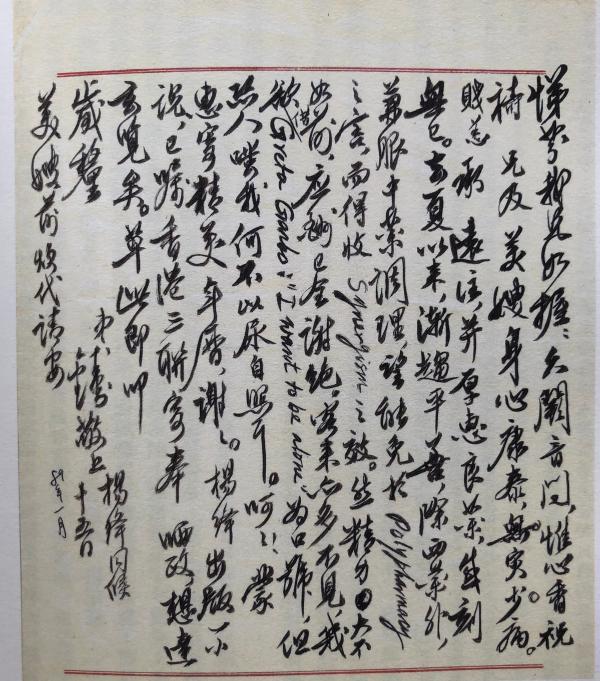 悌芬我兄如握：久阔音问，惟心香祝
祷 兄及 美嫂身心康泰，无灾少病。
贱恙承 远注，并厚惠良药，感刻
无已。去夏以来，渐趋平善，除西药外，
兼服中药调理，望能免于 Polypharmacy
之害，而得收 Synergism 之效。然精力大不
如前，应酬已全谢绝。客来亦多不见，我
欲借 Greta Garbo: "I want to be alone" 为口号，但
恐人嗤我何不以尿自照耳。呵呵！蒙
惠寄精美年历，谢谢。杨绛出版一小
说，已嘱香港三联寄奉 哂政，想达
玄览矣。草此即叩
岁釐
弟 钱锺书敬上 十五日
杨绛同候
美嫂前烦代请安
八九年一月